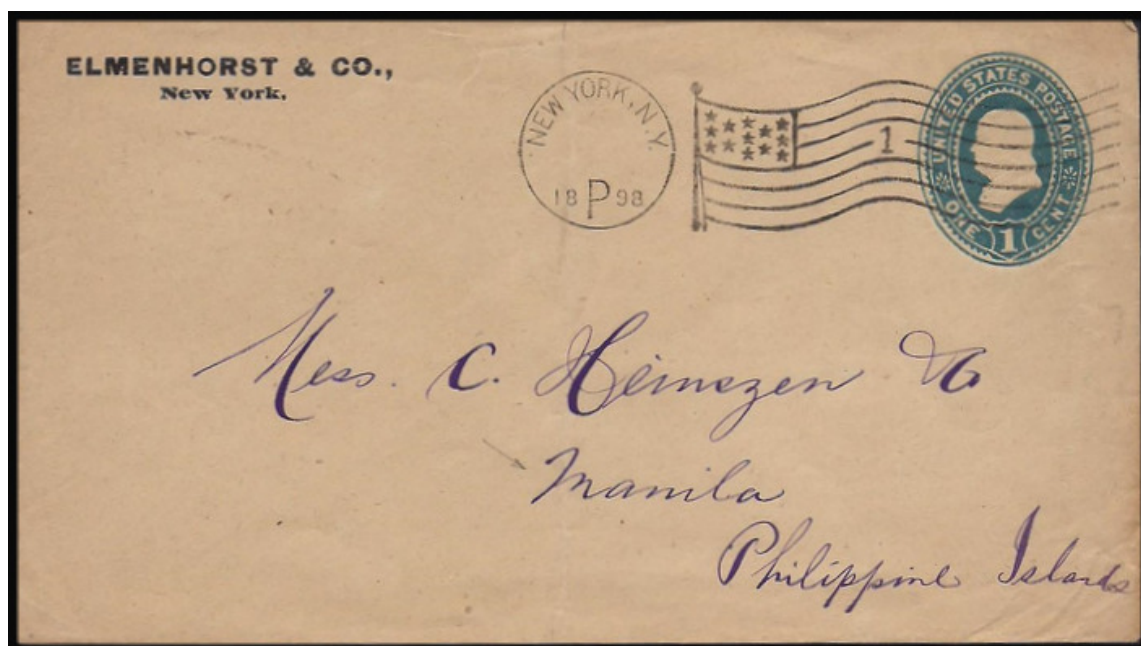 ELMENHORST & CO.,
New York.
NEW YORK, N.Y.
18 P 98
1
UNITED STATES POSTAGE
ONE 1 CENT
Mess. C. Heinszen & Co
Manila
Philippine Islands